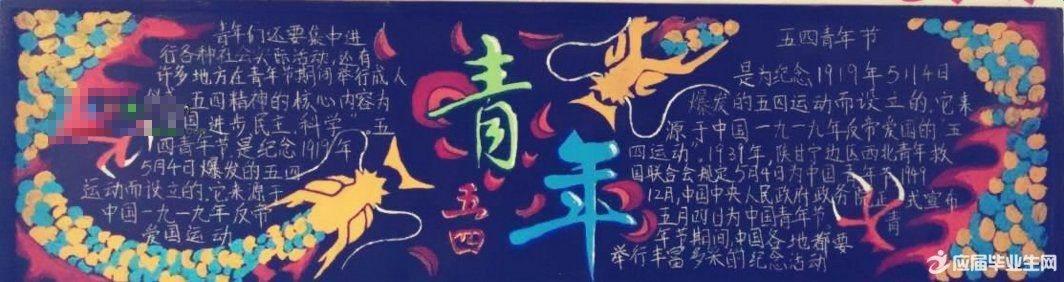 青年们还要集中进
行各种社会实际活动,还有
许多地方在青年节期间举行成人
五四精神的核心内容为
国,进步民主,科学”。五
四青年节是纪念1919年
5月4日爆发的五四
运动而设立的,它来源于
中国一九一九年反帝
爱国运动
青年
五四
五四青年节
是为纪念1919年5月4日
爆发的五四运动而设立的,它来
源于中国一九一九年反帝爱国的“五
四运动”,1939年,陕甘宁边区西北青年救
国联合会规定5月4日为中国青年节1949
12月,中国中央人民政府政务院正式宣布
五月四日为中国青年节 青
年节期间中国各地都要
举行丰富多采的纪念活动
应届毕业生网